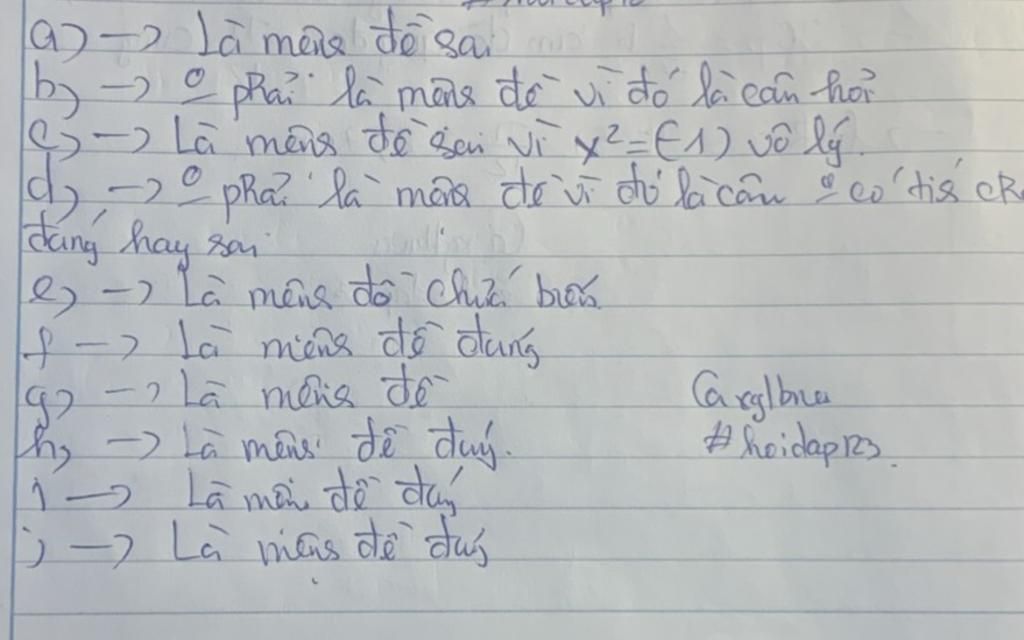 a) → Là mệnh đề sai
b) → 0 phải là mệnh đề vì đó là câu hỏi
c) → Là mệnh đề sai vì x² = (-1) vô lý.
d) → 0 phải là mệnh đề vì đó là câu 0 có tính
đúng hay sai
e) → Là mệnh đề chứa biến
f → Là mệnh đề đúng
g) → Là mệnh đề
h) → Là mệnh đề đúng.
i → Là mệnh đề đúng
j → Là mệnh đề đúng
#hoidap123.